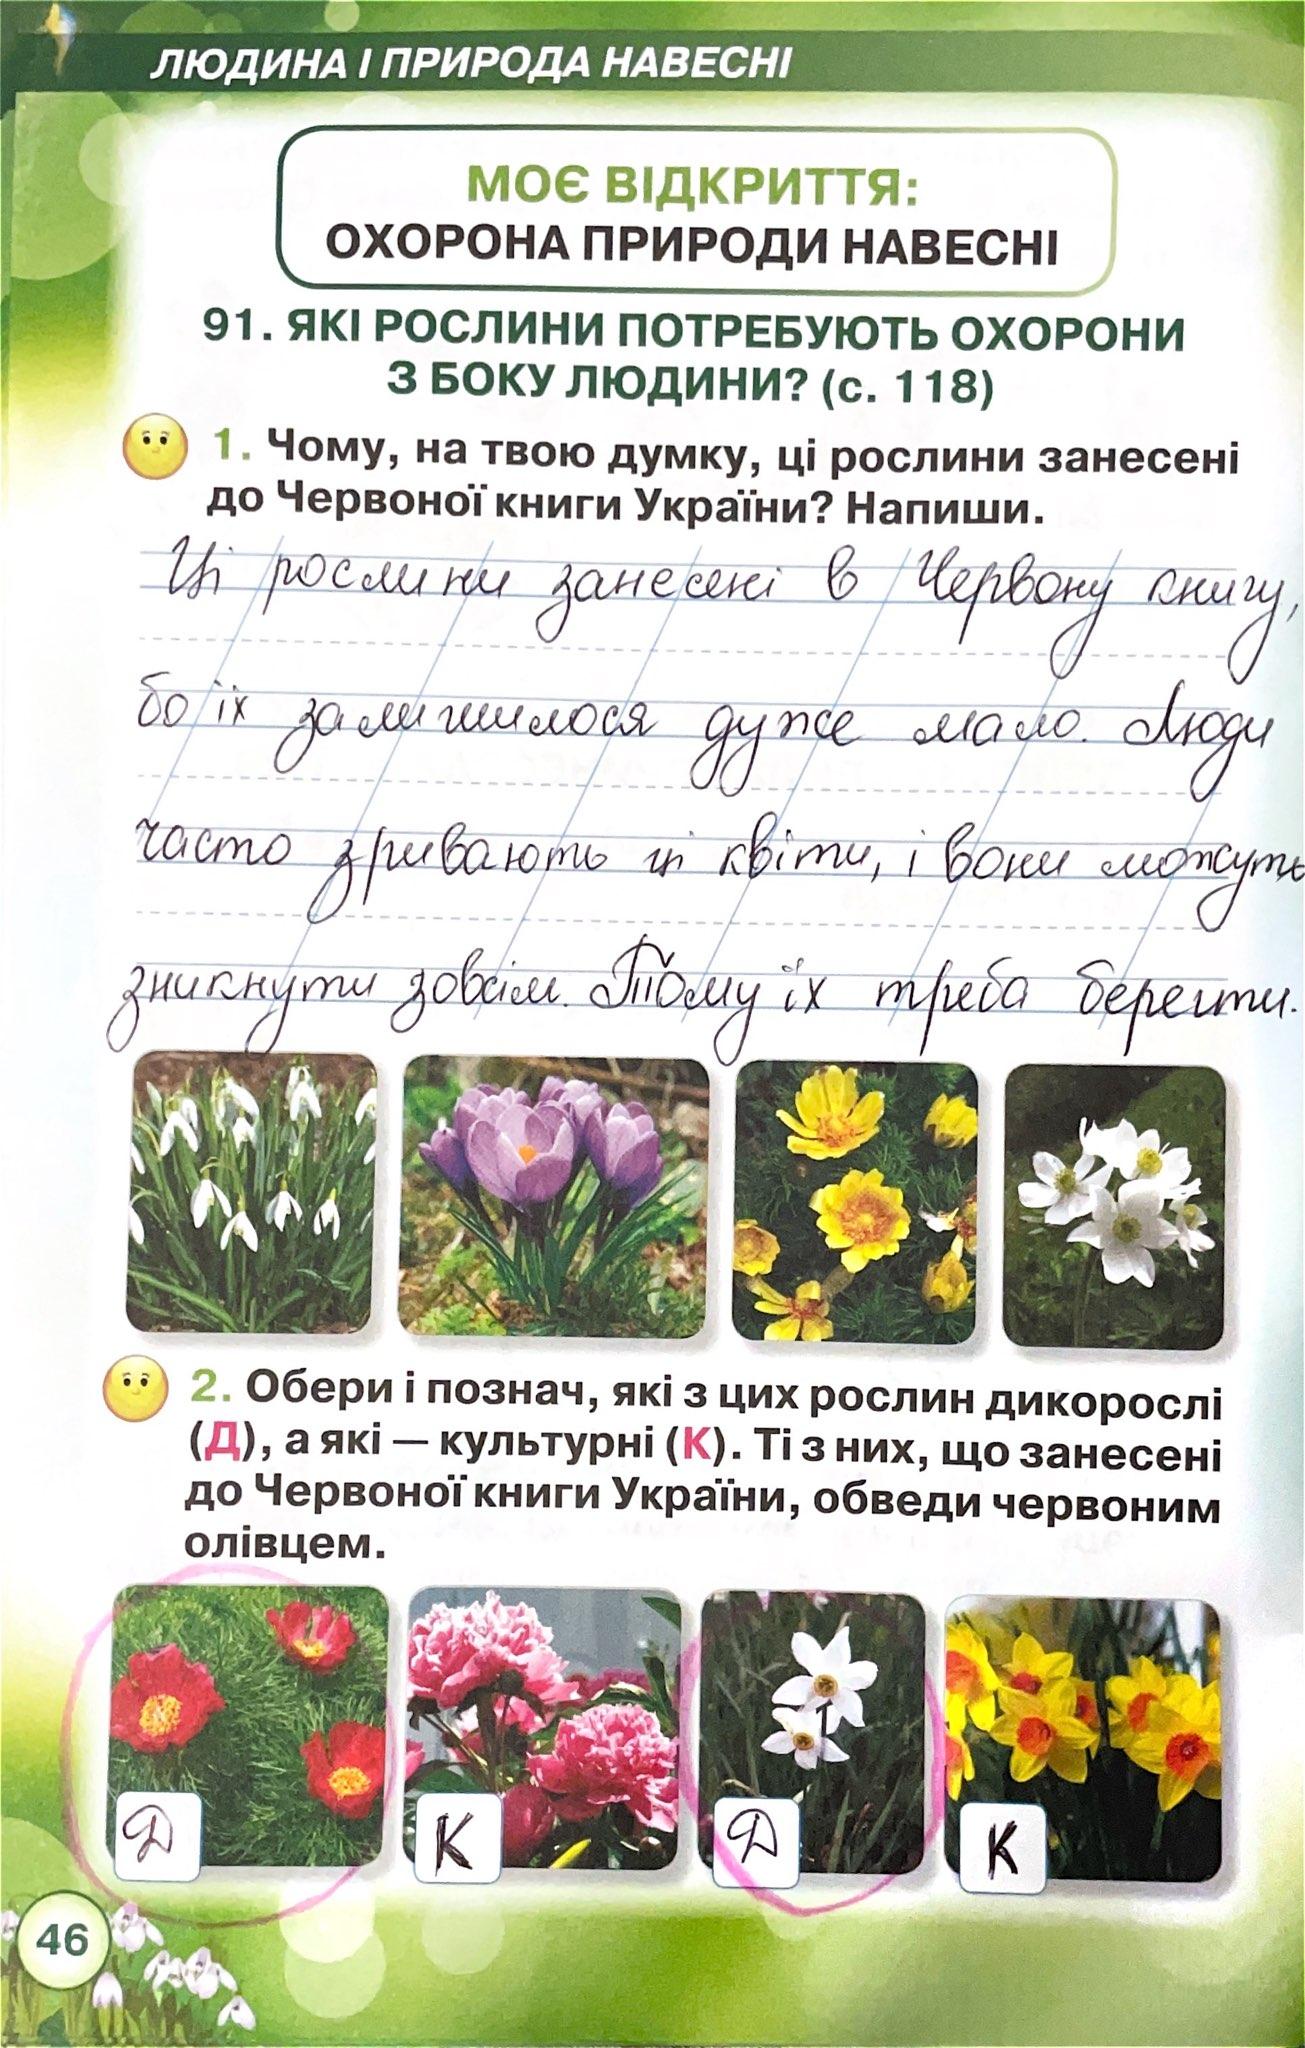 ЛЮДИНА І ПРИРОДА НАВЕСНІ
МОЄ ВІДКРИТТЯ:
ОХОРОНА ПРИРОДИ НАВЕСНІ
91. ЯКІ РОСЛИНИ ПОТРЕБУЮТЬ ОХОРОНИ
З БОКУ ЛЮДИНИ? (с. 118)
1. Чому, на твою думку, ці рослини занесені
до Червоної книги України? Напиши.
Ці рослини занесені в Червону книгу,
бо їх залишилося дуже мало. Люди
часто зривають ці квіти, і вони можуть
зникнути зовсім. Тому їх треба берегти.
2. Обери і познач, які з цих рослин дикорослі
(Д), а які — культурні (К). Ті з них, що занесені
до Червоної книги України, обведи червоним
олівцем.
Д К Д К
46